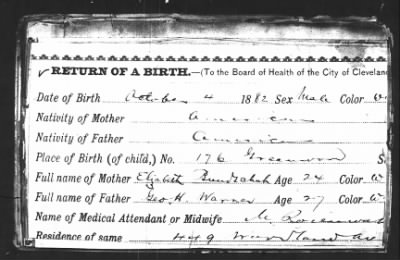 ✓ RETURN OF A BIRTH.—(To the Board of Health of the City of Cleveland
Date of Birth October 4 1882 Sex Male Color W
Nativity of Mother American
Nativity of Father American
Place of Birth (of child,) No. 176 Greenwood S
Full name of Mother Elizabeth Age 24 Color W
Full name of Father Geo. H. Warner Age 27 Color W
Name of Medical Attendant or Midwife M.
Residence of same 449 Woodland Av